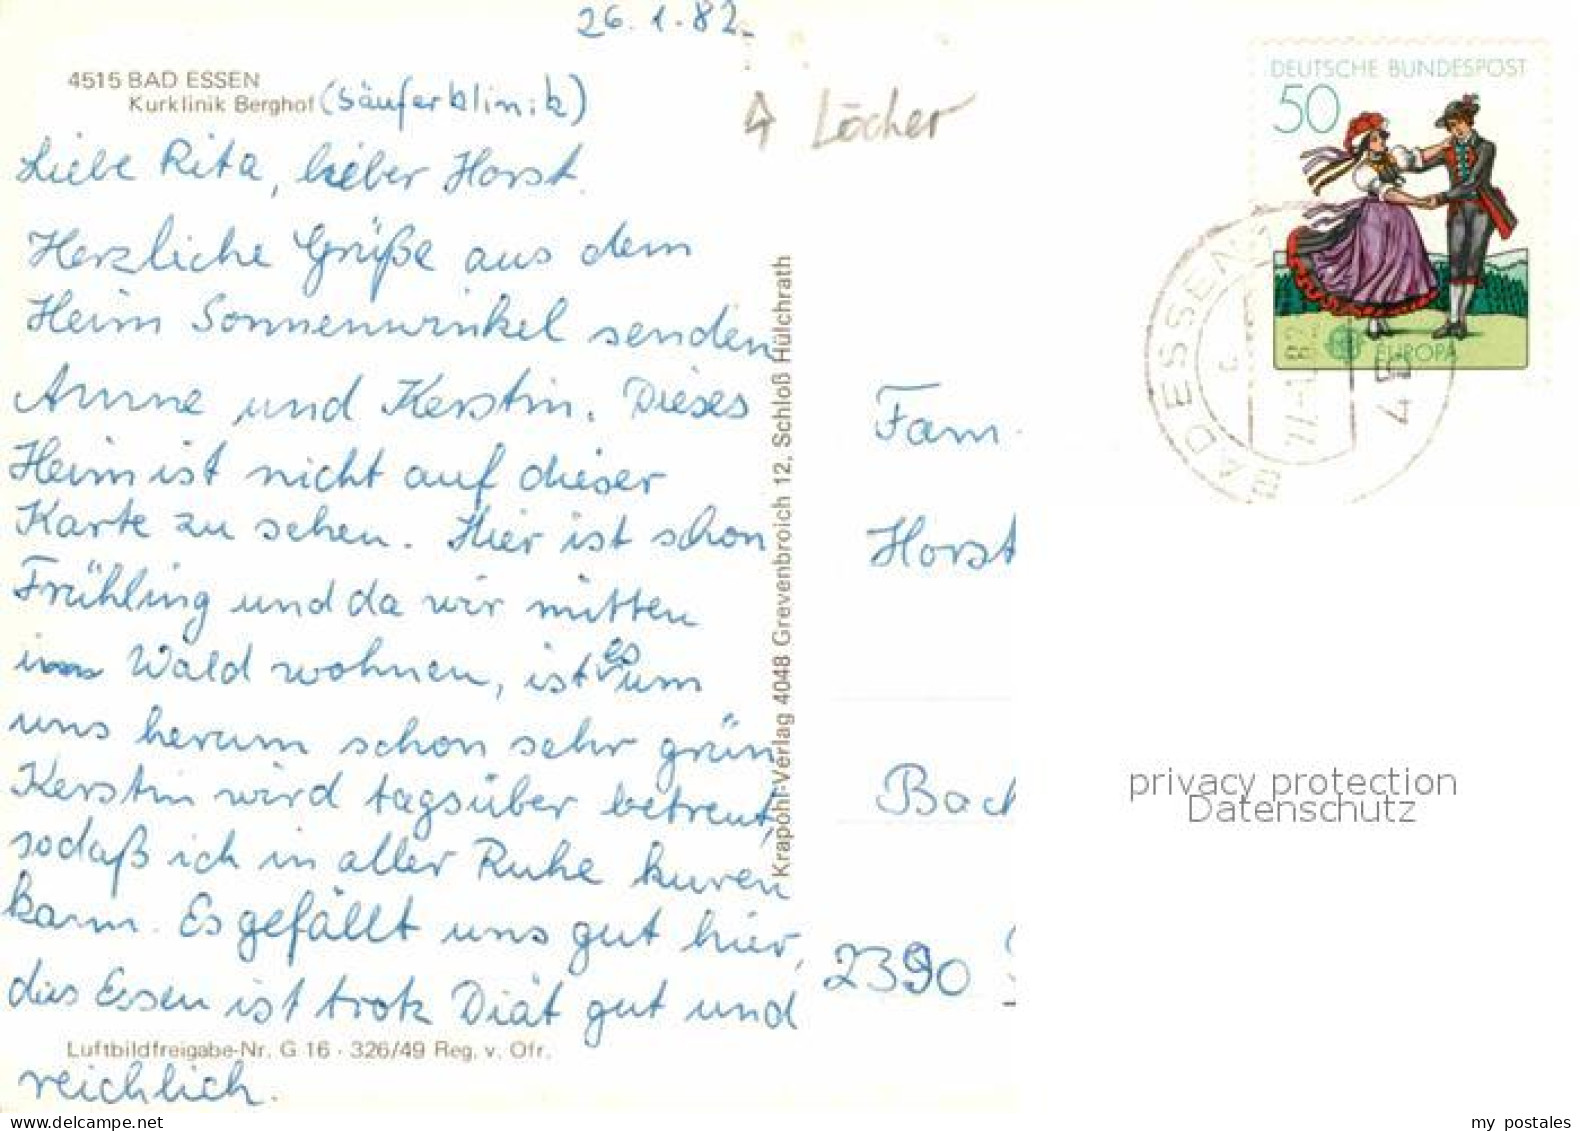 26.1.82.
4515 BAD ESSEN
Kurklinik Berghof (Säuferklinik)
4 Löcher
Liebe Rita, lieber Horst.
Herzliche Grüße aus dem
Heim Sonnenwinkel senden
Anne und Kerstin. Dieses
Heim ist nicht auf dieser
Karte zu sehen. Hier ist schon
Frühling und da wir mitten
im Wald wohnen, ist es um
uns herum schon sehr grün
Kerstin wird tagsüber betreut,
sodaß ich in aller Ruhe kuren
kann. Es gefällt uns gut hier,
das Essen ist trotz Diät gut und
reichlich.
Luftbildfreigabe-Nr. G 16 · 326/49 Reg. v. Ofr.
Krapohl-Verlag 4048 Grevenbroich 12, Schloß Hülchrath
DEUTSCHE BUNDESPOST
50
EUROPA
BAD ESSEN 1
Fam.
Horst
Bach
2390
privacy protection
Datenschutz
my postales